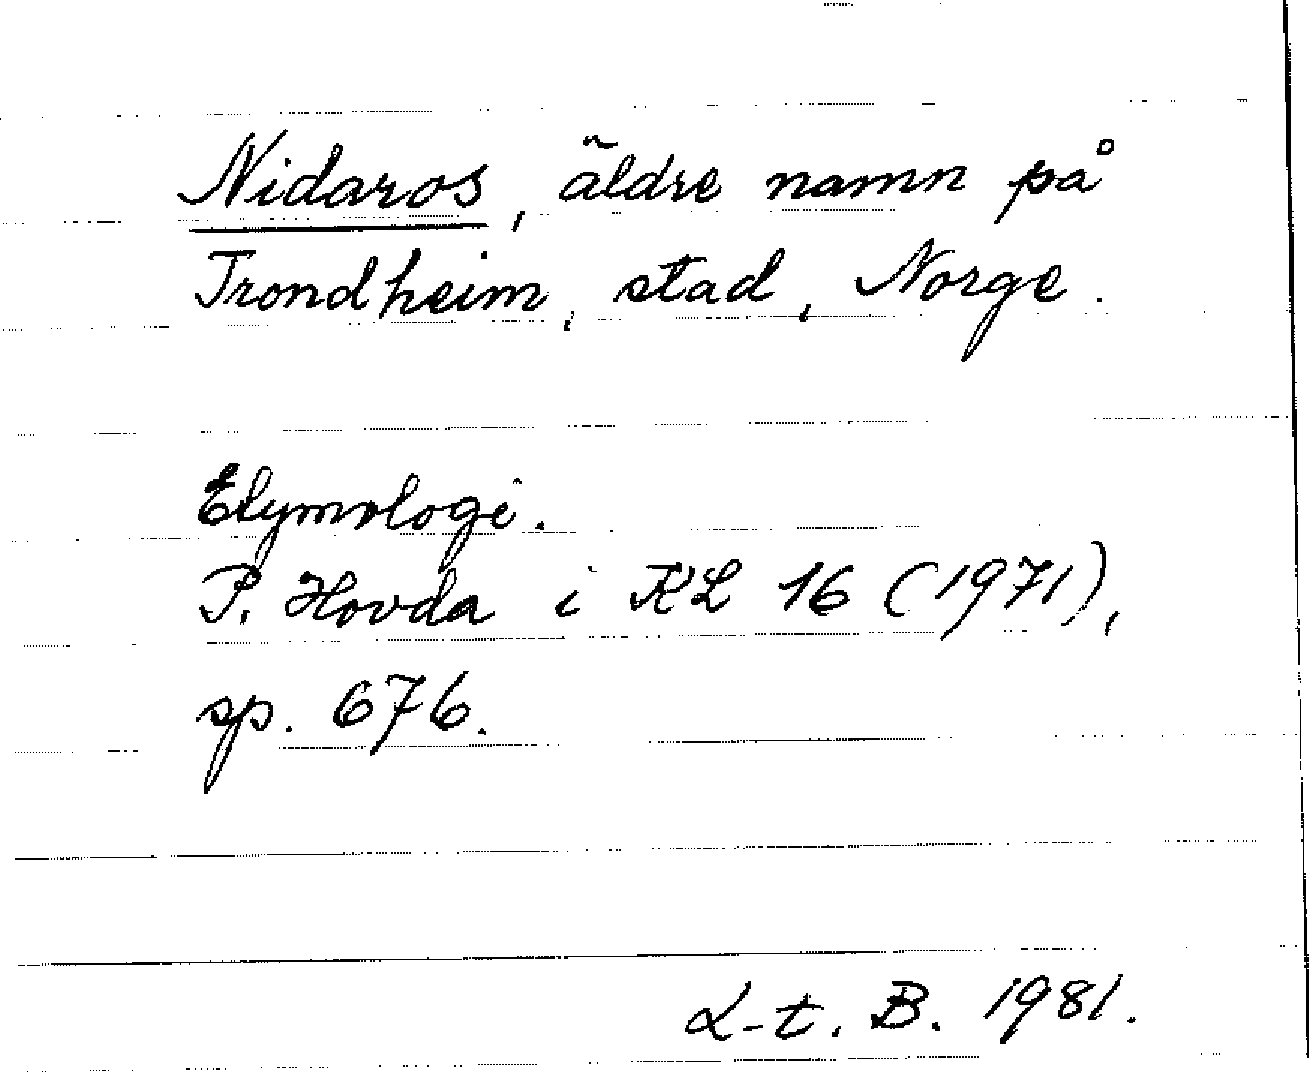 Nidaros, äldre namn på
Trondheim, stad, Norge.
Etymologi.
P. Hovda i KL 16 (1971),
sp. 676.
L-t. B. 1981.